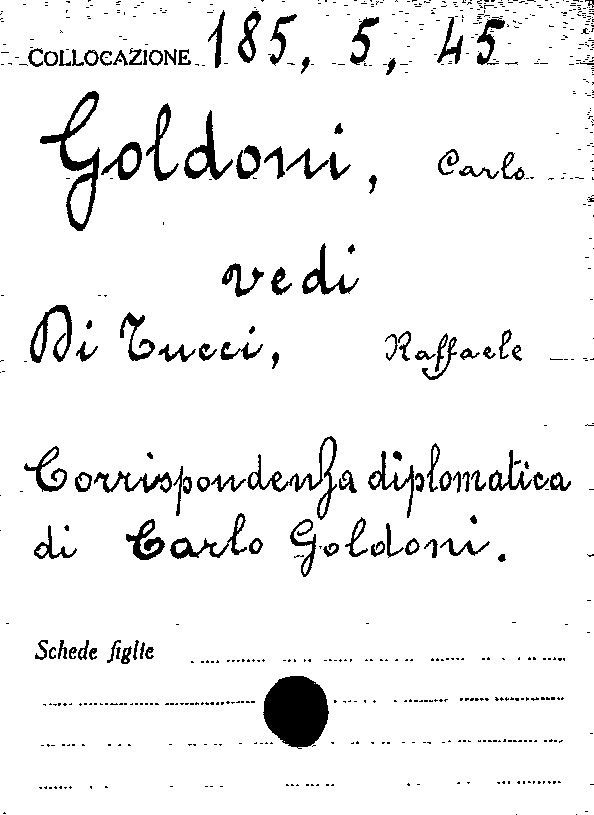 COLLOCAZIONE 185, 5, 45
Goldoni, Carlo
vedi
Di Tucci, Raffaele
Corrispondenza diplomatica
di Carlo Goldoni.
Schede figlie